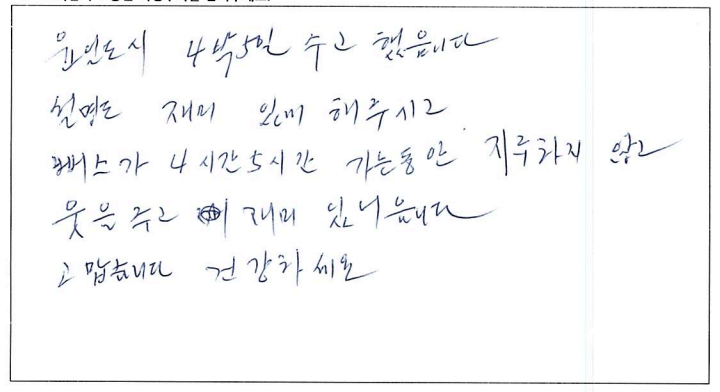 윤인도시 4박5일 수고 했읍니다
설명도 재미 있께 해주시고
뻐스가 4시간5시간 가는동안 지루하지 않고
웃을 주고 재미 있너읍니다
고맙습니다 건강하세요